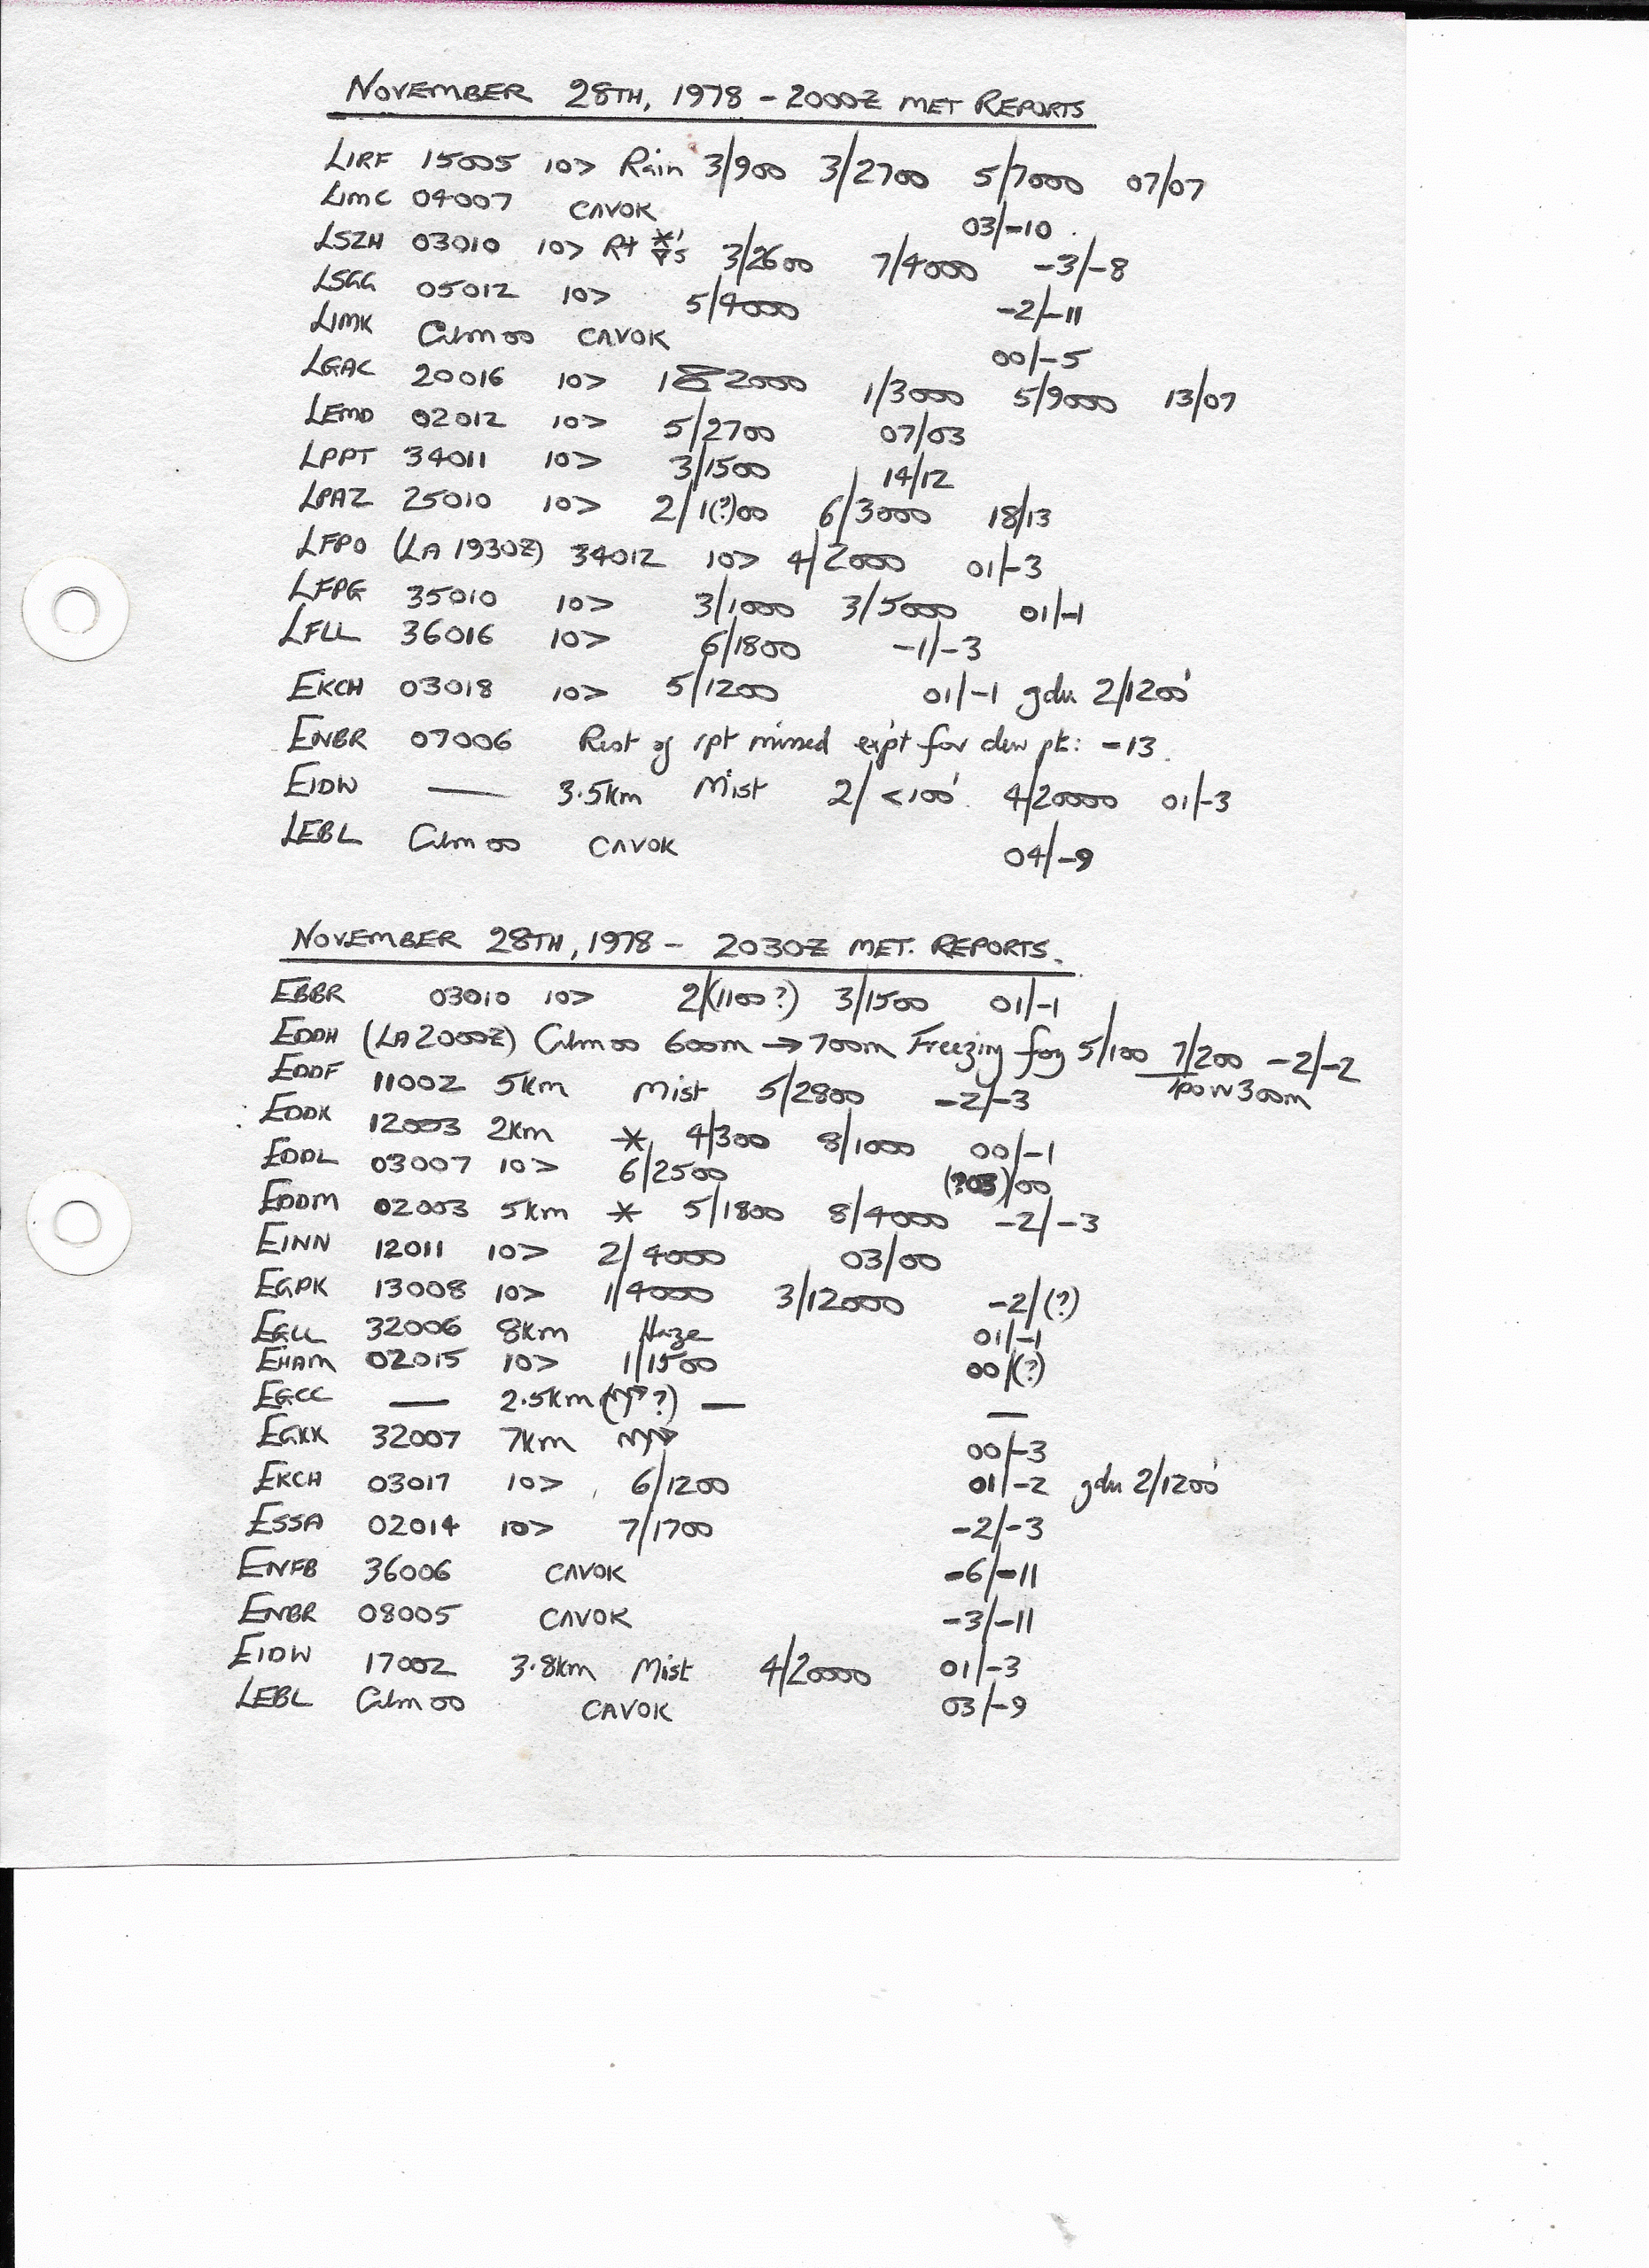 NOVEMBER 28TH, 1978 - 2000Z MET REPORTS
LIRF 15005 10> Rain 3/900 3/2700 5/7000 07/07
LIMC 04007 CAVOK 03/-10.
LSZH 03010 10> 3/2600 7/4000 -3/-8
LSGG 05012 10> 5/4000 -2/-11
LIMK Calm 00 CAVOK 00/-5
LGAC 20016 10> 2000 1/3000 5/9000 13/07
LEMD 02012 10> 5/2700 07/03
LPPT 34011 10> 3/1500 14/12
LPAZ 25010 10> 2/1(?)00 6/3000 18/13
LFPO (LA 1930Z) 34012 10> 4/2000 01/-3
LFPG 35010 10> 3/1000 3/5000 01/-1
LFLL 36016 10> 6/1800 -1/-3
EKCH 03018 10> 5/1200 01/-1 gdu 2/1200'
ENBR 07006 Rest of rpt missed exipt for dew pt: -13.
EIDW — 3.5km Mist 2/<100'. 4/20000 01/-3
LEBL Calm 00 CAVOK 04/-9
NOVEMBER 28TH, 1978 - 2030Z MET. REPORTS.
EBBR 03010 10> 2/(1100?) 3/1500 01/-1
EDDH (LA 2000Z) Calm 00 600m → 700m Freezing fog 5/100 7/200 -2/-2
EDDF 11002 5km Mist 5/2800 -2/-3 Tpo vv 300m
EDDK 12003 2km * 4/300 8/1000 00/-1
EDDL 03007 10> 6/2500 (?03)/00
EDDM 02003 5km * 5/1800 8/4000 -2/-3
EINN 12011 10> 2/4000 03/00
EGPK 13008 10> 1/4000 3/12000 -2/(?)
EGLL 32006 8km Haze 01/-1
EHAM 02015 10> 1/1500 00/(?)
EGCC — 2.5km — —
EGKK 32007 7km 00/-3
EKCH 03017 10> 6/1200 01/-2 gdu 2/1200'
ESSA 02014 10> 7/1700 -2/-3
ENFB 36006 CAVOK -6/-11
ENBR 08005 CAVOK -3/-11
EIDW 17002 3.8km Mist 4/20000 01/-3
LEBL Calm 00 CAVOK 03/-9